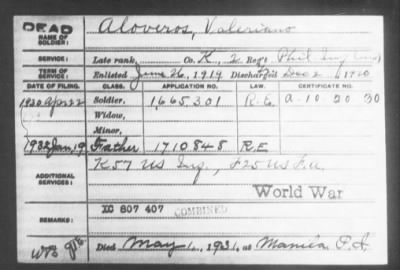 DEAD
NAME OF SOLDIER: Aloveros, Valeriano
SERVICE: Late rank, Co. K, 2 Reg't Phil Inf
TERM OF SERVICE: Enlisted June 26, 1919 Discharged Dec 2 1920
DATE OF FILING. CLASS. APPLICATION NO. LAW. CERTIFICATE NO.
1930 Apr 22 Soldier, 1,665,301 R.E. a. 10 20 30
Widow,
Minor,
1932 Jan, 19 Father 1710848 R.E
ADDITIONAL SERVICES: K 57 US Inf., F 25 US Inf.
World War
XC 807 407 COMBINED
REMARKS:
Died May 1, 1931, at Manila P.I.